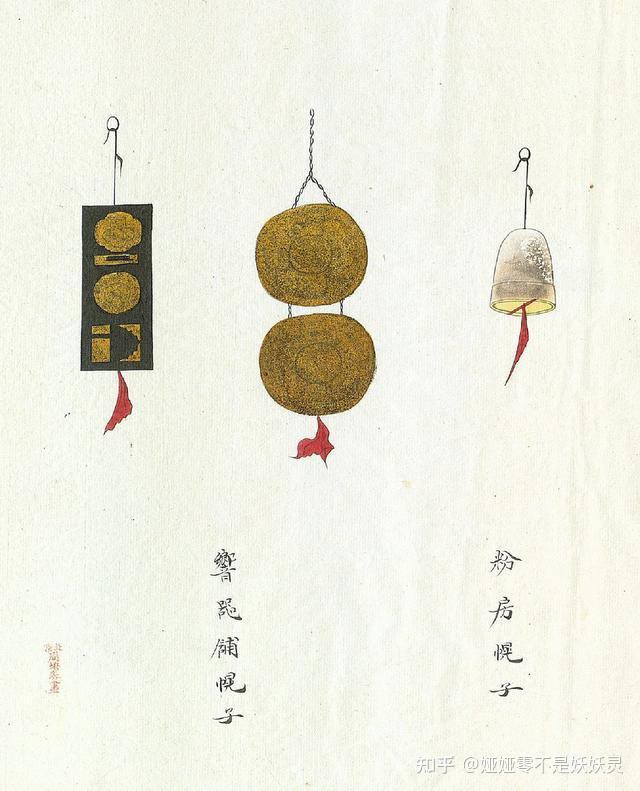 粉房幌子
響器鋪幌子
知乎 @娅娅零不是妖妖灵